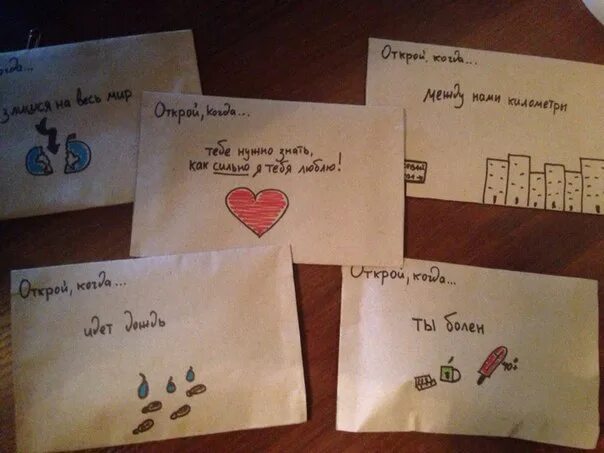 Открой, когда...
злишься на весь мир
Открой, когда...
тебе нужно знать,
как сильно я тебя люблю!
Открой, когда...
между нами километры
Открой, когда...
идет дождь
Открой, когда...
ты болен
40+